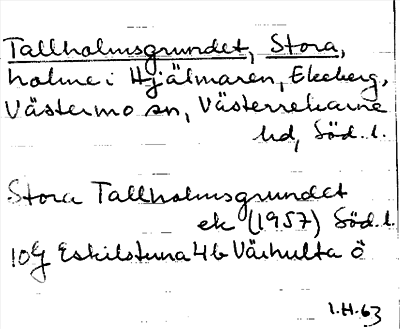 Tallholmsgrundet, Stora,
holme i Hjälmaren, Ekeberg,
Västermo sn, Västerrekarne
hd, Söd. l.
Stora Tallholmsgrundet
ek (1957) Söd. l.
10G Eskilstuna 4b Värhulta ö
1.H.63